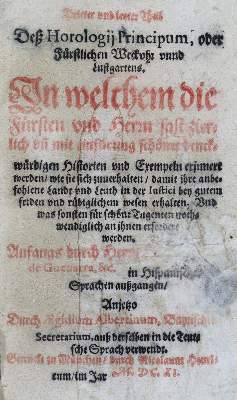 Dritter und letzter Theil
Deß Horologij Principum, oder
Fürstlichen Weckvhr vnnd
Lustgartens.
In welchem die
Fürsten vnd Herrn fast zier-
lich vñ mit einführung schöner denck-
würdigen Historien vnd Exempeln erinnert
werden / wie sie sich zuuerhalten / damit ihre anbe-
fohlene Landt vnd Leuth in der Iustici bey gutem
friden vnd rühiglichem wesen erhalten. Vnd
was sonsten für schöne Tugenten noth-
wendiglich an ihnen erfordert
werden.
Anfangs durch Herrn
de Gueuarra, &c. in Hispanischer
Sprachen außgangen /
Anjetzo
Durch Egidium Albertinum, Bayrischen
Secretarium, auß derselben in die Teut-
sche Sprach verwendt.
Getruckt zu München / durch Nicolaum Henri-
cum / im Jar M. DC. XI.